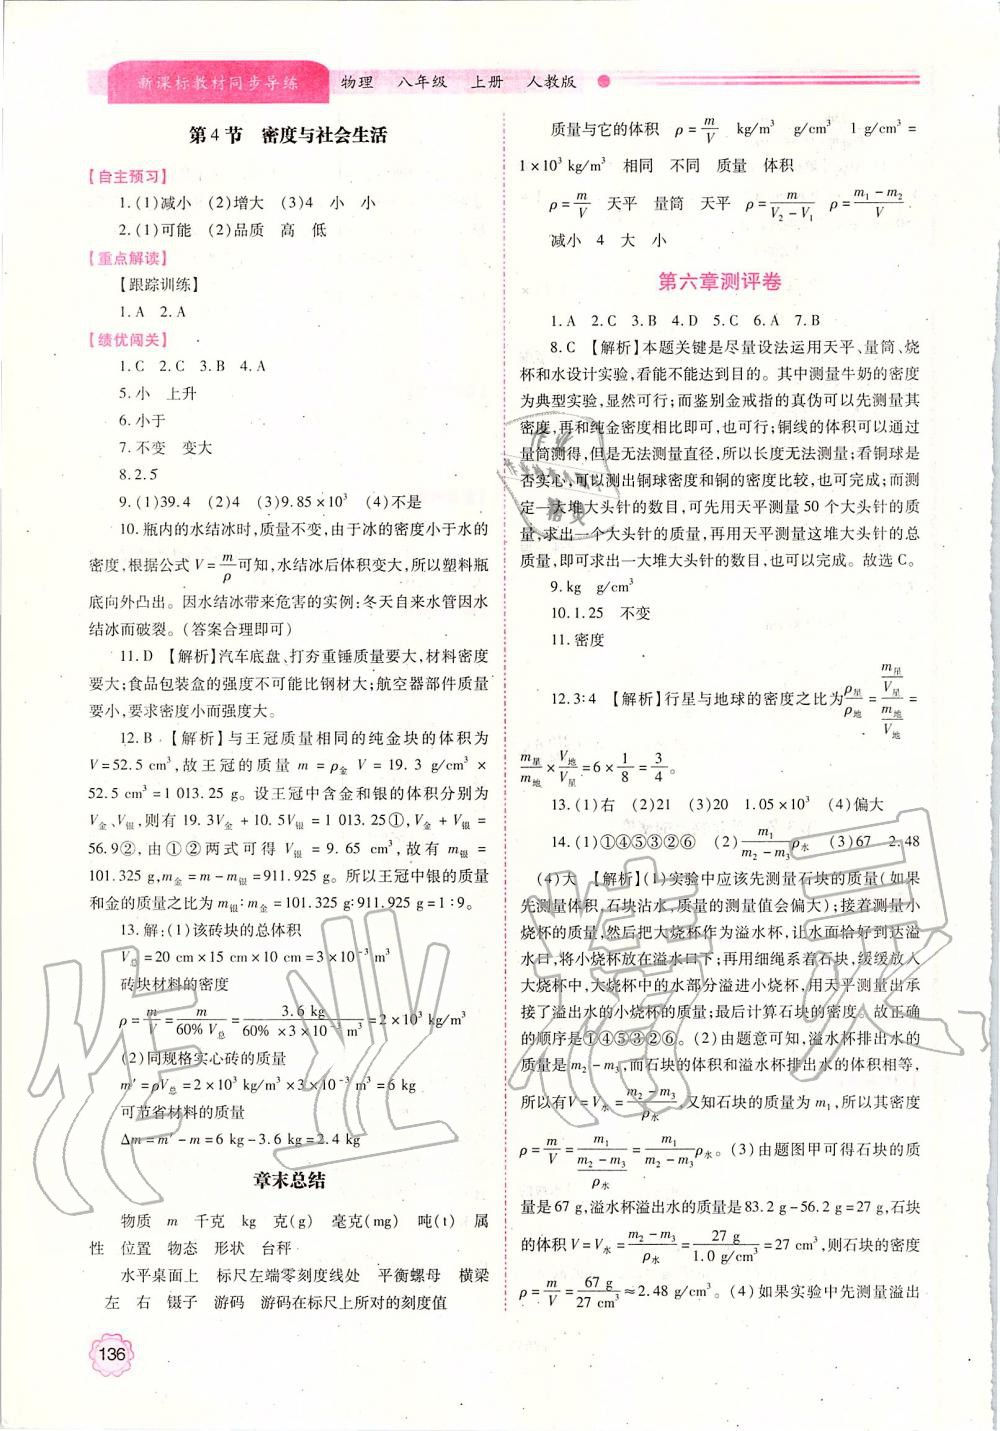 新课标教材同步导练 物理 八年级 上册 人教版
第4节 密度与社会生活
【自主预习】
1.(1)减小 (2)增大 (3)4 小 小
2.(1)可能 (2)品质 高 低
【重点解读】
【跟踪训练】
1.A 2.A
【绩优闯关】
1.C 2.C 3.B 4.A
5.小 上升
6.小于
7.不变 变大
8.2.5
9.(1)39.4 (2)4 (3)9.85×10³ (4)不是
10.瓶内的水结冰时,质量不变,由于冰的密度小于水的
密度,根据公式V=m/ρ可知,水结冰后体积变大,所以塑料瓶
底向外凸出。因水结冰带来危害的实例:冬天自来水管因水
结冰而破裂。(答案合理即可)
11.D 【解析】汽车底盘、打夯重锤质量要大,材料密度
要大;食品包装盒的强度不可能比钢材大;航空器部件质量
要小,要求密度小而强度大。
12.B 【解析】与王冠质量相同的纯金块的体积为
V=52.5 cm³,故王冠的质量 m=ρ金 V=19.3 g/cm³×
52.5 cm³=1 013.25 g。设王冠中含金和银的体积分别为
V金、V银,则有 19.3V金+10.5V银=1 013.25①,V金+V银=
56.9②,由①②两式可得 V银=9.65 cm³,故有 m银=
101.325 g,m金=m-m银=911.925 g。所以王冠中银的质量
和金的质量之比为 m银:m金=101.325 g:911.925 g=1:9。
13.解:(1)该砖块的总体积
V总=20 cm×15 cm×10 cm=3×10⁻³ m³
砖块材料的密度
ρ=m/V=m/60% V总=3.6 kg/60%×3×10⁻³ m³=2×10³ kg/m³
(2)同规格实心砖的质量
m′=ρV总=2×10³ kg/m³×3×10⁻³ m³=6 kg
可节省材料的质量
Δm=m′-m=6 kg-3.6 kg=2.4 kg
章末总结
物质 m 千克 kg 克(g) 毫克(mg) 吨(t) 属
性 位置 物态 形状 台秤
水平桌面上 标尺左端零刻度线处 平衡螺母 横梁
左 右 镊子 游码 游码在标尺上所对的刻度值
136
质量与它的体积 ρ=m/V kg/m³ g/cm³ 1 g/cm³=
1×10³ kg/m³ 相同 不同 质量 体积
ρ=m/V 天平 量筒 天平 ρ=m/(V₂-V₁) ρ=(m₁-m₂)/V
减小 4 大 小
第六章测评卷
1.A 2.C 3.B 4.D 5.C 6.A 7.B
8.C 【解析】本题关键是尽量设法运用天平、量筒、烧
杯和水设计实验,看能不能达到目的。其中测量牛奶的密度
为典型实验,显然可行;而鉴别金戒指的真伪可以先测量其
密度,再和纯金密度相比即可,也可行;铜线的体积可以通过
量筒测得,但是无法测量直径,所以长度无法测量;看铜球是
否实心,可以测出铜球密度和铜的密度比较,也可以完成;而测
定一大堆大头针的数目,可先用天平测量50个大头针的质
量,求出一个大头针的质量,再用天平测量这堆大头针的总
质量,即可求出一大堆大头针的数目,也可以完成。故选C。
9.kg g/cm³
10.1.25 不变
11.密度
12.3:4 【解析】行星与地球的密度之比为ρ星/ρ地=(m星/V星)/(m地/V地)=
m星/m地×V地/V星=6×1/8=3/4。
13.(1)右 (2)21 (3)20 1.05×10³ (4)偏大
14.(1)①④⑤③②⑥ (2)m₁/(m₂-m₃)ρ水 (3)67 2.48
(4)大 【解析】(1)实验中应该先测量石块的质量(如果
先测量体积,石块沾水,质量的测量值会偏大);接着测量小
烧杯的质量,然后把大烧杯作为溢水杯,让水面恰好到达溢
水口,将小烧杯放在溢水口下;再用细绳系着石块,缓缓放入
大烧杯中,大烧杯中的水部分溢进小烧杯,用天平测量出承
接了溢出水的小烧杯的质量;最后计算石块的密度。故正确
的顺序是①④⑤③②⑥。(2)由题意可知,溢水杯排出水的
质量是 m₂-m₃,而石块的体积和溢水杯排出水的体积相等,
所以有V=V水=(m₂-m₃)/ρ水,又知石块的质量为 m₁,所以其密度
ρ=m/V=m₁/((m₂-m₃)/ρ水)=m₁/(m₂-m₃)ρ水。(3)由题图甲可得石块的质
量是67 g,溢水杯溢出水的质量是83.2 g-56.2 g=27 g,石块
的体积 V=V水=(m₂-m₃)/ρ水=27 g/1.0 g/cm³=27 cm³,则石块的密度
ρ=m/V=67 g/27 cm³≈2.48 g/cm³。(4)如果实验中先测量溢出
作业精灵